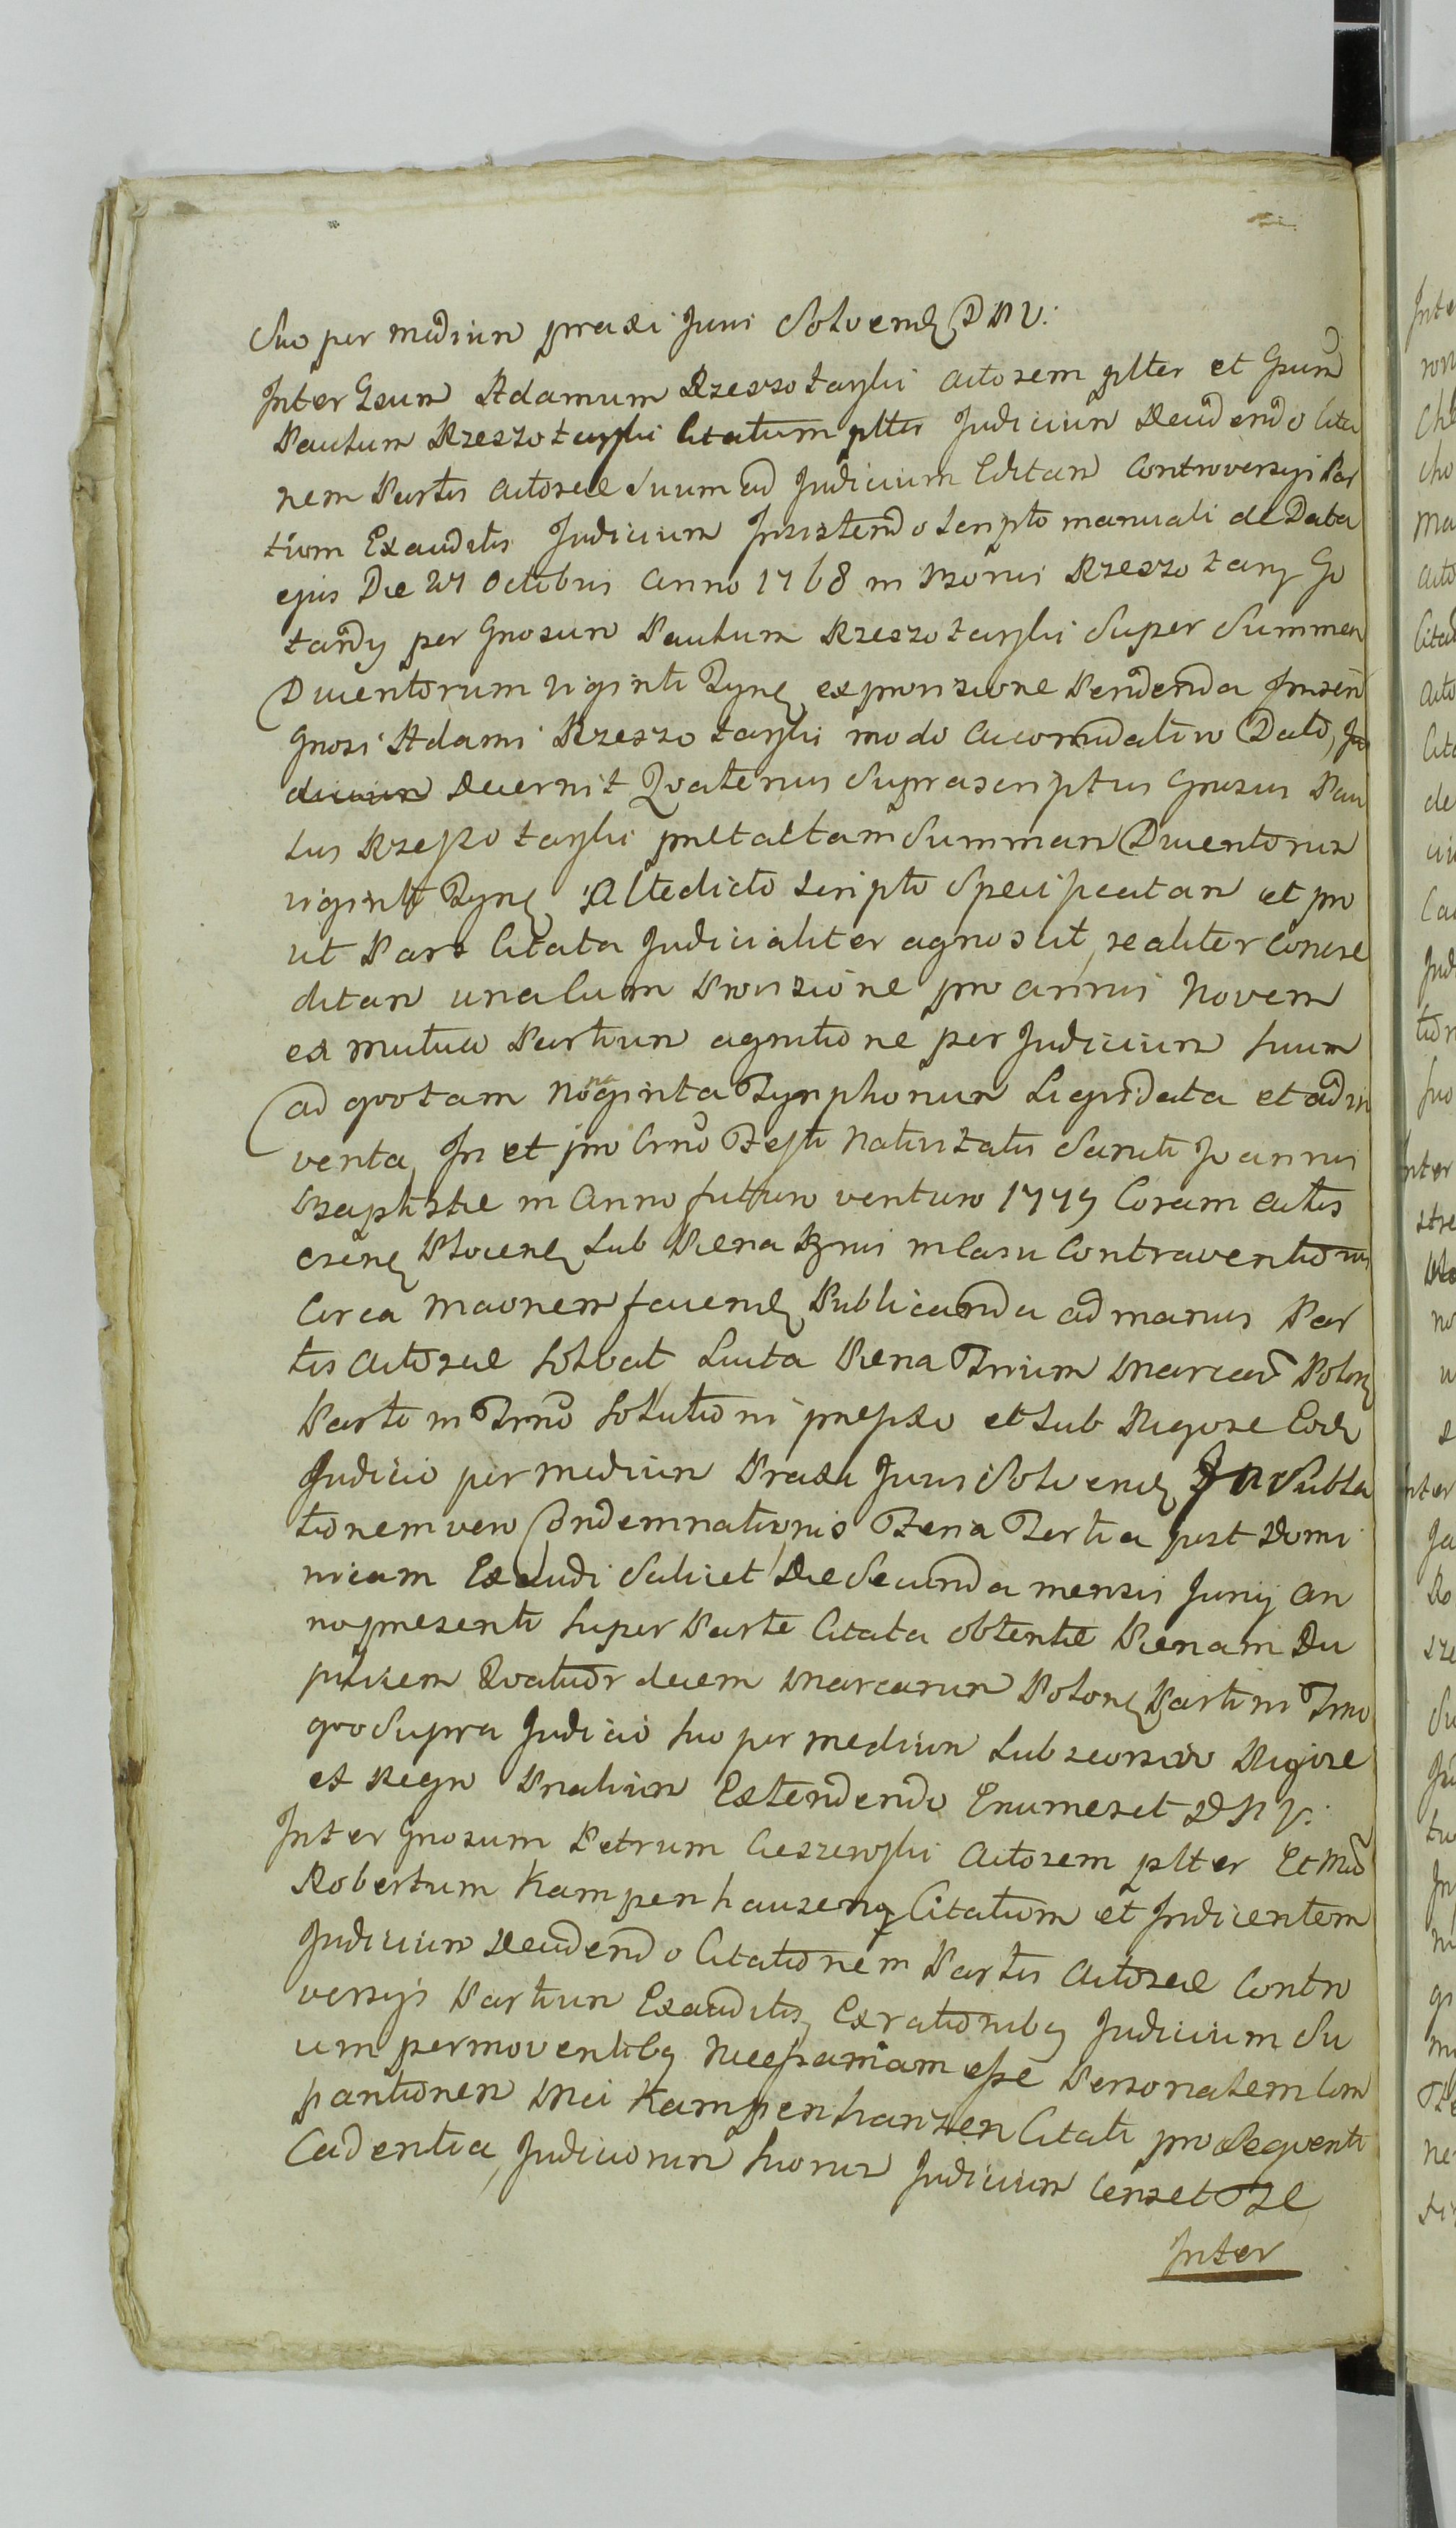 Suo per medium praxi Juris Solvend DNV:
Inter Gsum Adamum Rzeszotarski Actorem plter et Gsum
Paulum Rzeszotarski Citatum plter Judicium Recudendo Cita
nem Partis Actoreae Suum ad Judicium Editam Controversys Par
tium Exauditis Judicium Insistendo Scripto manuali de Data
ejus Die 27 Octobris Anno 1768 in Bonis Rzeszotary Go
tardy per Gnosum Paulum Rzeszotarski Super Summam
Ducentorum viginti Tynf ex provisione Pendenda Insern
Gnosi Adami Rzeszotarski modo Accomodativo Dato, Ju
dicium Decernit Qvatenus Suprascriptus Gnosus Pau
lus Rzeszotarski praetactam Summam Ducentorum
viginti Tynf Altedicto Scripto Specificatam et pro
ut Pars Citata Judicialiter agnoscit, realiter Concre
ditam una Cum Provisione pro annis Novem
ex mutua Partium agnitione per Judicium Suum
ad qvotam Nonaginta Tynphonum Liqvidata et adin
venta, In et pro Crno Festi Nativitatis Sancti Joannis
Baptistae in Anno futuro venturo 1779 Coram Actis
Crens Plocens Sub Paena Bnis in Casu Contraventionis
Circa maonem faciend Publicanda ad manus Par
tis Actoreae Solvat Luita Paena Trium Marcar Polon
Parti in Trno Solutioni praefixo et Sub Rigore Eod
Judicio per medium Praxi Juris Solvend In Subla
tionem vero Condemnationis Feria Tertia post Domi
nicam Exaudi Scilicet Die Secunda mensis Juny An
no praesenti Super Parte Citata obtentae Paenam Du
plicem Qvatuor decem Marcarum Polon Parti in Trno
qvo Supra Judicio Suo per medium Sub seorsivo Rigore
et Regn Pnalium Extendendo Enumeret DNV:
Inter Gnosum Petrum Cieszewski Actorem plter Et Md
Robertum Kampenhauzeng Citatum et Indicentem
Judicium Recudendo Citationem Partis Actoreae Contro
versys Partium Exauditis, Ex rationibg Judicium Su
um permoventibg Necessariam esse Personalem Com
paritionem Mci Kampenhauzen Citati pro Seqventi
Cadentia, Judiciorum Suorum Judicium Censet
Inter